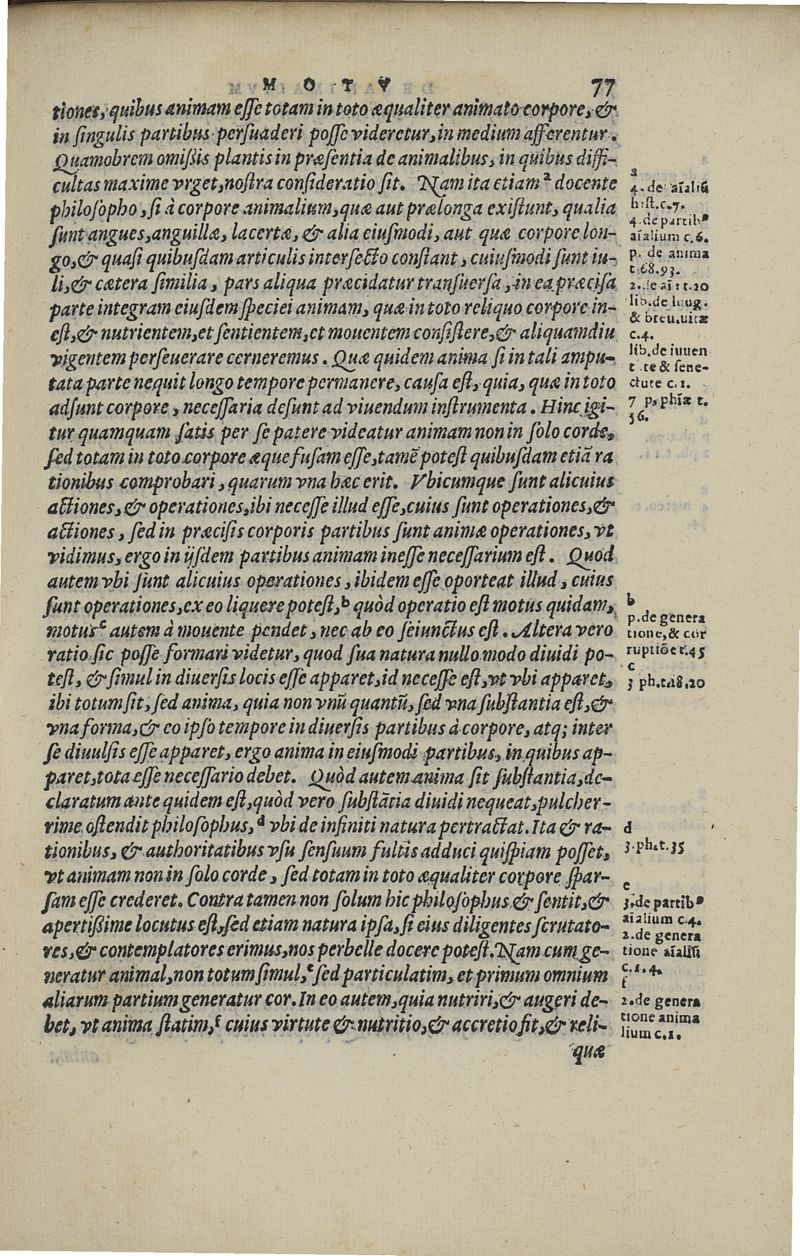 M O T V 77
tiones, quibus animam eſſe totam in toto æqualiter animato corpore, &
in ſingulis partibus perſuaderi poſſe videretur, in medium afferentur.
Quamobrem omiſsis plantis in præſentia de animalibus, in quibus diffi-
cultas maxime vrget, noſtra conſideratio ſit. Nam ita etiam ᵃ docente
philoſopho, ſi à corpore animalium, quæ aut prælonga exiſtunt, qualia
ſunt angues, anguillæ, lacertæ, & alia eiuſmodi, aut quæ corpore lon-
go, & quaſi quibuſdam articulis interſecto conſtant, cuiuſmodi ſunt iu-
li, & cætera ſimilia, pars aliqua præcidatur tranſuerſa, in ea præciſa
parte integram eiuſdem ſpeciei animam, quæ in toto reliquo corpore in-
eſt, & nutrientem, et ſentientem, et mouentem conſiſtere, & aliquamdiu
vigentem perſeuerare cerneremus. Quæ quidem anima ſi in tali ampu-
tata parte nequit longo tempore permanere, cauſa eſt, quia, quæ in toto
adſunt corpore, neceſſaria deſunt ad viuendum inſtrumenta. Hinc igi-
tur quamquam ſatis per ſe patere videatur animam non in ſolo corde,
ſed totam in toto corpore æque fuſam eſſe, tamẽ poteſt quibuſdam etiã ra
tionibus comprobari, quarum vna hæc erit. Vbicumque ſunt alicuius
actiones, & operationes, ibi neceſſe illud eſſe, cuius ſunt operationes, &
actiones, ſed in præciſis corporis partibus ſunt animæ operationes, vt
vidimus, ergo in ijſdem partibus animam ineſſe neceſſarium eſt. Quod
autem vbi ſunt alicuius operationes, ibidem eſſe oporteat illud, cuius
ſunt operationes, ex eo liquere poteſt, ᵇ quòd operatio eſt motus quidam,
motus ᶜ autem à mouente pendet, nec ab eo ſeiunctus eſt. Altera vero
ratio ſic poſſe formari videtur, quod ſua natura nullo modo diuidi po-
teſt, & ſimul in diuerſis locis eſſe apparet, id neceſſe eſt, vt vbi apparet,
ibi totum ſit, ſed anima, quia non vnũ quantũ, ſed vna ſubſtantia eſt, &
vna forma, & eo ipſo tempore in diuerſis partibus à corpore, atq; inter
ſe diuulſis eſſe apparet, ergo anima in eiuſmodi partibus, in quibus ap-
paret, tota eſſe neceſſario debet. Quòd autem anima ſit ſubſtantia, de-
claratum ante quidem eſt, quòd vero ſubſtãtia diuidi nequeat, pulcher-
rime oſtendit philoſophus, ᵈ vbi de infiniti natura pertractat. Ita & ra-
tionibus, & authoritatibus vſu ſenſuum fultis adduci quiſpiam poſſet,
vt animam non in ſolo corde, ſed totam in toto æqualiter corpore ſpar-
ſam eſſe crederet. Contra tamen non ſolum hic philoſophus & ſentit, &
apertiſsime locutus eſt, ſed etiam natura ipſa, ſi eius diligentes ſcrutato-
res, & contemplatores erimus, nos perbelle docere poteſt. Nam cum ge-
neratur animal, non totum ſimul, ᵉ ſed particulatim, et primum omnium
aliarum partium generatur cor. In eo autem, quia nutriri, & augeri de-
bet, vt anima ſtatim, ᶠ cuius virtute & nutritio, & accretio fit, & reli-
quæ
a
4. de aĩaliũ
hiſt. c. 7.
4. de partib⁹
aĩalium c. 6.
p. de anima
t. 68. 93.
2. de aĩ t. 20
lib. de lõg.
& breu. uitæ
c. 4.
lib. de iuuen
t .te & ſene-
ctute c. 1.
7 p, phiæ t.
36.
b
p. de genera
tione, & cor
ruptiõe t. 45
c
3 ph. t. 18, 20
d
3. ph. t. 35
e
3. de partib⁹
aĩalium c. 4.
2. de genera
tione aĩaliũ
c. 1. 4.
f
2. de genera
tione anima
lium c. 1.